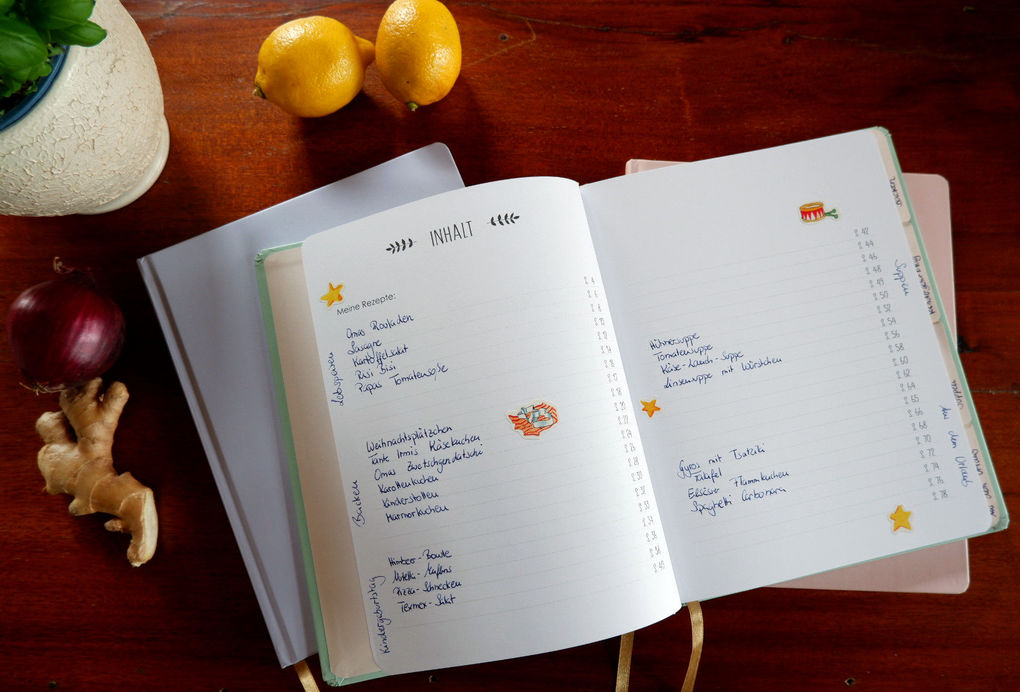 INHALT
Meine Rezepte:
Leibspeisen
Omas Rouladen
Lasagne
Kartoffelsalat
Risi Bisi
Papas Tomatensoße
Backen
Weihnachtsplätzchen
Tante Irmis Käsekuchen
Omas Zwetschgendatschi
Karottenkuchen
Kinderstollen
Marmorkuchen
Kindergeburtstag
Himbeer-Bowle
Muffins
Pizza-Schnecken
Salat
S. 4
S. 6
S. 8
S. 10
S. 12
S. 14
S. 16
S. 17
S. 18
S. 20
S. 22
S. 24
S. 26
S. 28
S. 30
S. 32
S. 33
S. 34
S. 36
S. 38
S. 40
Suppen
Hühnersuppe
Tomatensuppe
Käse-Lauch-Suppe
Linsensuppe mit Würstchen
Aus dem Urlaub
Gyros mit Tsatziki
Falafel
Elsässer Flammkuchen
Spaghetti Carbonara
S. 42
S. 44
S. 46
S. 48
S. 49
S. 50
S. 52
S. 54
S. 56
S. 58
S. 60
S. 62
S. 64
S. 65
S. 66
S. 68
S. 70
S. 72
S. 74
S. 76
S. 78